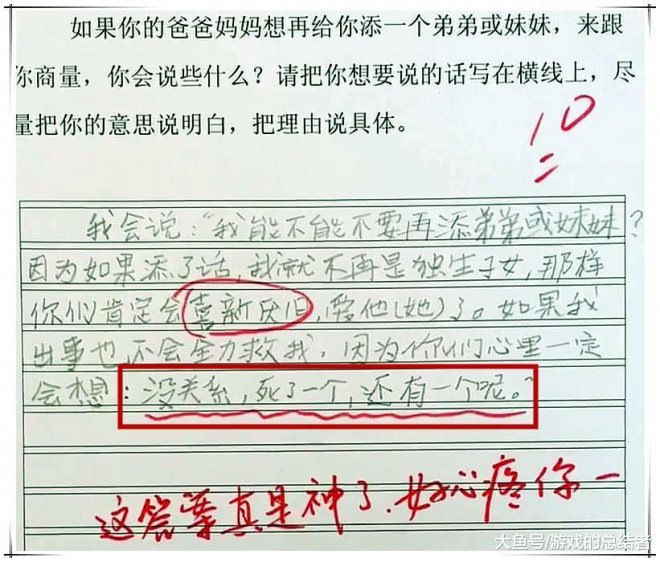 如果你的爸爸妈妈想再给你添一个弟弟或妹妹，来跟
你商量，你会说些什么？请把你想要说的话写在横线上，尽
量把你的意思说明白，把理由说具体。
10
我会说：“我能不能不要再添弟弟或妹妹？
因为如果添了话，我就不再是独生子女，那样
你们肯定会喜新厌旧，爱他(她)了。如果我
出事也不会全力救我，因为你们心里一定
会想：没关系，死了一个，还有一个呢。”
这答案真是神了，好心疼你一
大鱼号/游戏的总结者